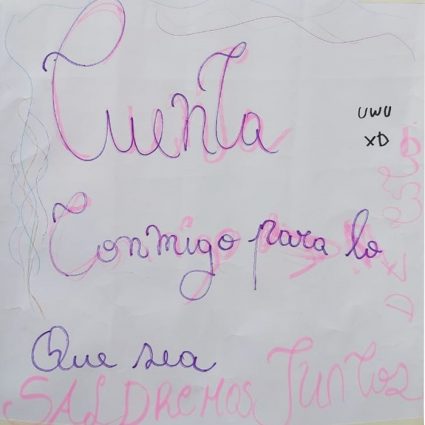 Cuenta
UWU
XD
Conmigo para lo
Que sea
SALDREMOS JUNTOS
DE ESTO